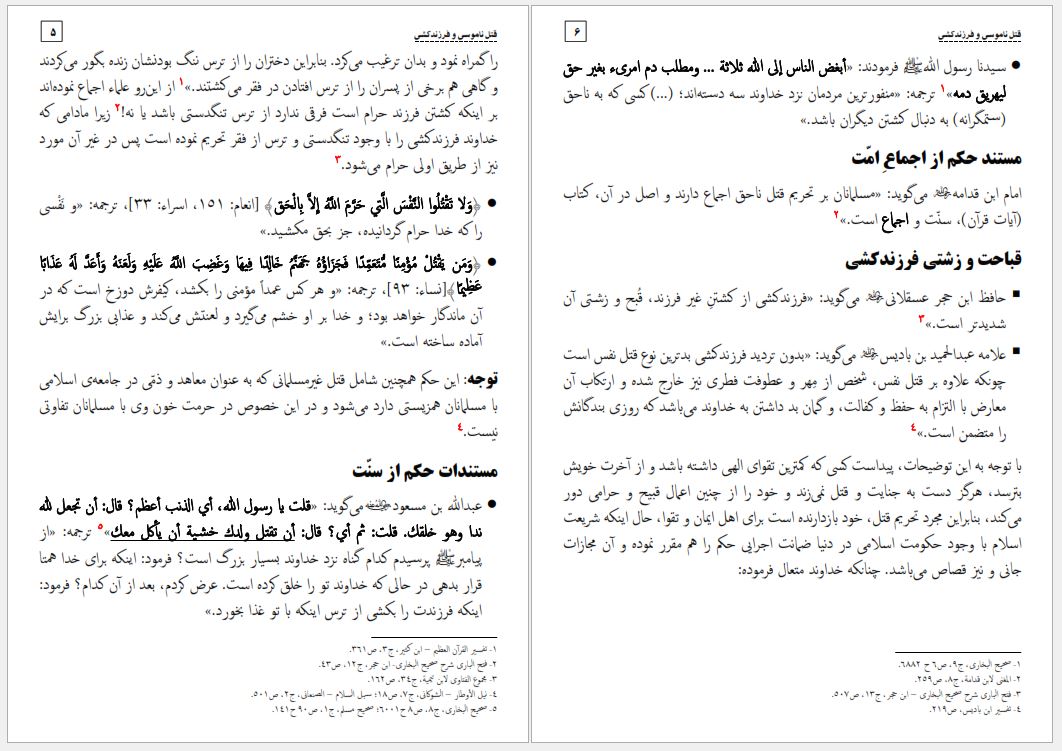 قتل ناموسی و فرزندکشی
۵
را گمراه نمود و بدان ترغیب می‌کرد. بنابراین دختران را از ترس ننگ بودنشان زنده بگور می‌کردند
و گاهی هم برخی از پسران را از ترس افتادن در فقر می‌کشتند.»۱ از این‌رو علماء اجماع نموده‌اند
بر اینکه کشتن فرزند حرام است فرقی ندارد از ترس تنگدستی باشد یا نه!۲ زیرا مادامی که
خداوند فرزندکشی را با وجود تنگدستی و ترس از فقر تحریم نموده است پس در غیر آن مورد
نیز از طریق اولی حرام می‌شود.۳
● ﴿وَلا تَقْتُلُوا النَّفْسَ الَّتِي حَرَّمَ اللَّهُ إِلاَّ بِالْحَقِ﴾ [انعام: ۱۵۱، اسراء: ۳۳]، ترجمه: «و نَفْسی
را که خدا حرام گردانیده، جز بحق مکشید.»
● ﴿وَمَن يَقْتُلْ مُؤْمِنًا مُّتَعَمِّدًا فَجَزَاؤُهُ جَهَنَّمُ خَالِدًا فِيهَا وَغَضِبَ اللَّهُ عَلَيْهِ وَلَعَنَهُ وَأَعَدَّ لَهُ عَذَابًا
عَظِيمًا﴾[نساء: ۹۳]، ترجمه: «و هر کس عمداً مؤمنی را بکشد، کیفرش دوزخ است که در
آن ماندگار خواهد بود؛ و خدا بر او خشم می‌گیرد و لعنتش می‌کند و عذابی بزرگ برایش
آماده ساخته است.»
توجه: این حکم همچنین شامل قتل غیرمسلمانی که به عنوان معاهد و ذمّی در جامعه‌ی اسلامی
با مسلمانان همزیستی دارد می‌شود و در این خصوص در حرمت خون وی با مسلمانان تفاوتی
نیست.۴
مستندات حکم از سنّت
● عبدالله بن مسعود می‌گوید: «قلت يا رسول الله، أي الذنب أعظم؟ قال: أن تجعل لله
ندا وهو خلقك. قلت: ثم أي؟ قال: أن تقتل ولدك خشية أن يأكل معك»۵ ترجمه: «از
پیامبرﷺ پرسیدم کدام گناه نزد خداوند بسیار بزرگ است؟ فرمود: اینکه برای خدا همتا
قرار بدهی در حالی که خداوند تو را خلق کرده است. عرض کردم، بعد از آن کدام؟ فرمود:
اینکه فرزندت را بکشی از ترس اینکه با تو غذا بخورد.»
۱- تفسیر القرآن العظیم – ابن کثیر، ج۳، ص۳۶۱.
۲- فتح الباری شرح صحیح البخاری- ابن حجر، ج۱۲، ص۴۳.
۳- مجموع الفتاوی لابن تیمیة، ج۳۴، ص۱۶۲.
۴- نیل الأوطار – الشوکانی، ج۷، ص۱۸؛ سبل السلام – الصنعانی، ج۲، ص۵۰۱.
۵- صحیح البخاری، ج۸، ص۸ ح۶۰۰۱؛ صحیح مسلم، ج۱، ص۹۰ ح۱۴۱.
قتل ناموسی و فرزندکشی
۶
● سیدنا رسول اللهﷺ فرمودند: «أبغض الناس إلى الله ثلاثة ... ومطلب دم امرىء بغير حق
ليهريق دمه»۱ ترجمه: «منفورترین مردمان نزد خداوند سه دسته‌اند؛ (...)کسی که به ناحق
(ستمگرانه) به دنبال کشتن دیگران باشد.»
مستند حکم از اجماعِ امّت
امام ابن قدامه می‌گوید: «مسلمانان بر تحریم قتل ناحق اجماع دارند و اصل در آن، کتاب
(آیات قرآن)، سنّت و اجماع است.»۲
قباحت و زشتی فرزندکشی
■ حافظ ابن حجر عسقلانی می‌گوید: «فرزندکشی از کشتنِ غیر فرزند، قُبح و زشتی آن
شدیدتر است.»۳
■ علامه عبدالحمید بن بادیس می‌گوید: «بدون تردید فرزندکشی بدترین نوع قتل نفس است
چونکه علاوه بر قتل نفس، شخص از مِهر و عطوفت فطری نیز خارج شده و ارتکاب آن
معارض با التزام به حفظ و کفالت، و گمان بد داشتن به خداوند می‌باشد که روزی بندگانش
را متضمن است.»۴
با توجه به این توضیحات، پیداست کسی که کمترین تقوای الهی داشته باشد و از آخرت خویش
بترسد، هرگز دست به جنایت و قتل نمی‌زند و خود را از چنین اعمال قبیح و حرامی دور
می‌کند، بنابراین مجرد تحریم قتل، خود بازدارنده است برای اهل ایمان و تقوا، حال اینکه شریعت
اسلام با وجود حکومت اسلامی در دنیا ضمانت اجرایی حکم را هم مقرر نموده و آن مجازات
جانی و نیز قصاص می‌باشد. چنانکه خداوند متعال فرموده:
۱- صحیح البخاری، ج۹، ص۶ ح ۶۸۸۲.
۲- المغنی لابن قدامة، ج۸، ص۲۵۹.
۳- فتح الباری شرح صحیح البخاری – ابن حجر، ج۱۳، ص۵۰۷.
۴- تفسیر ابن بادیس، ص۲۱۹.